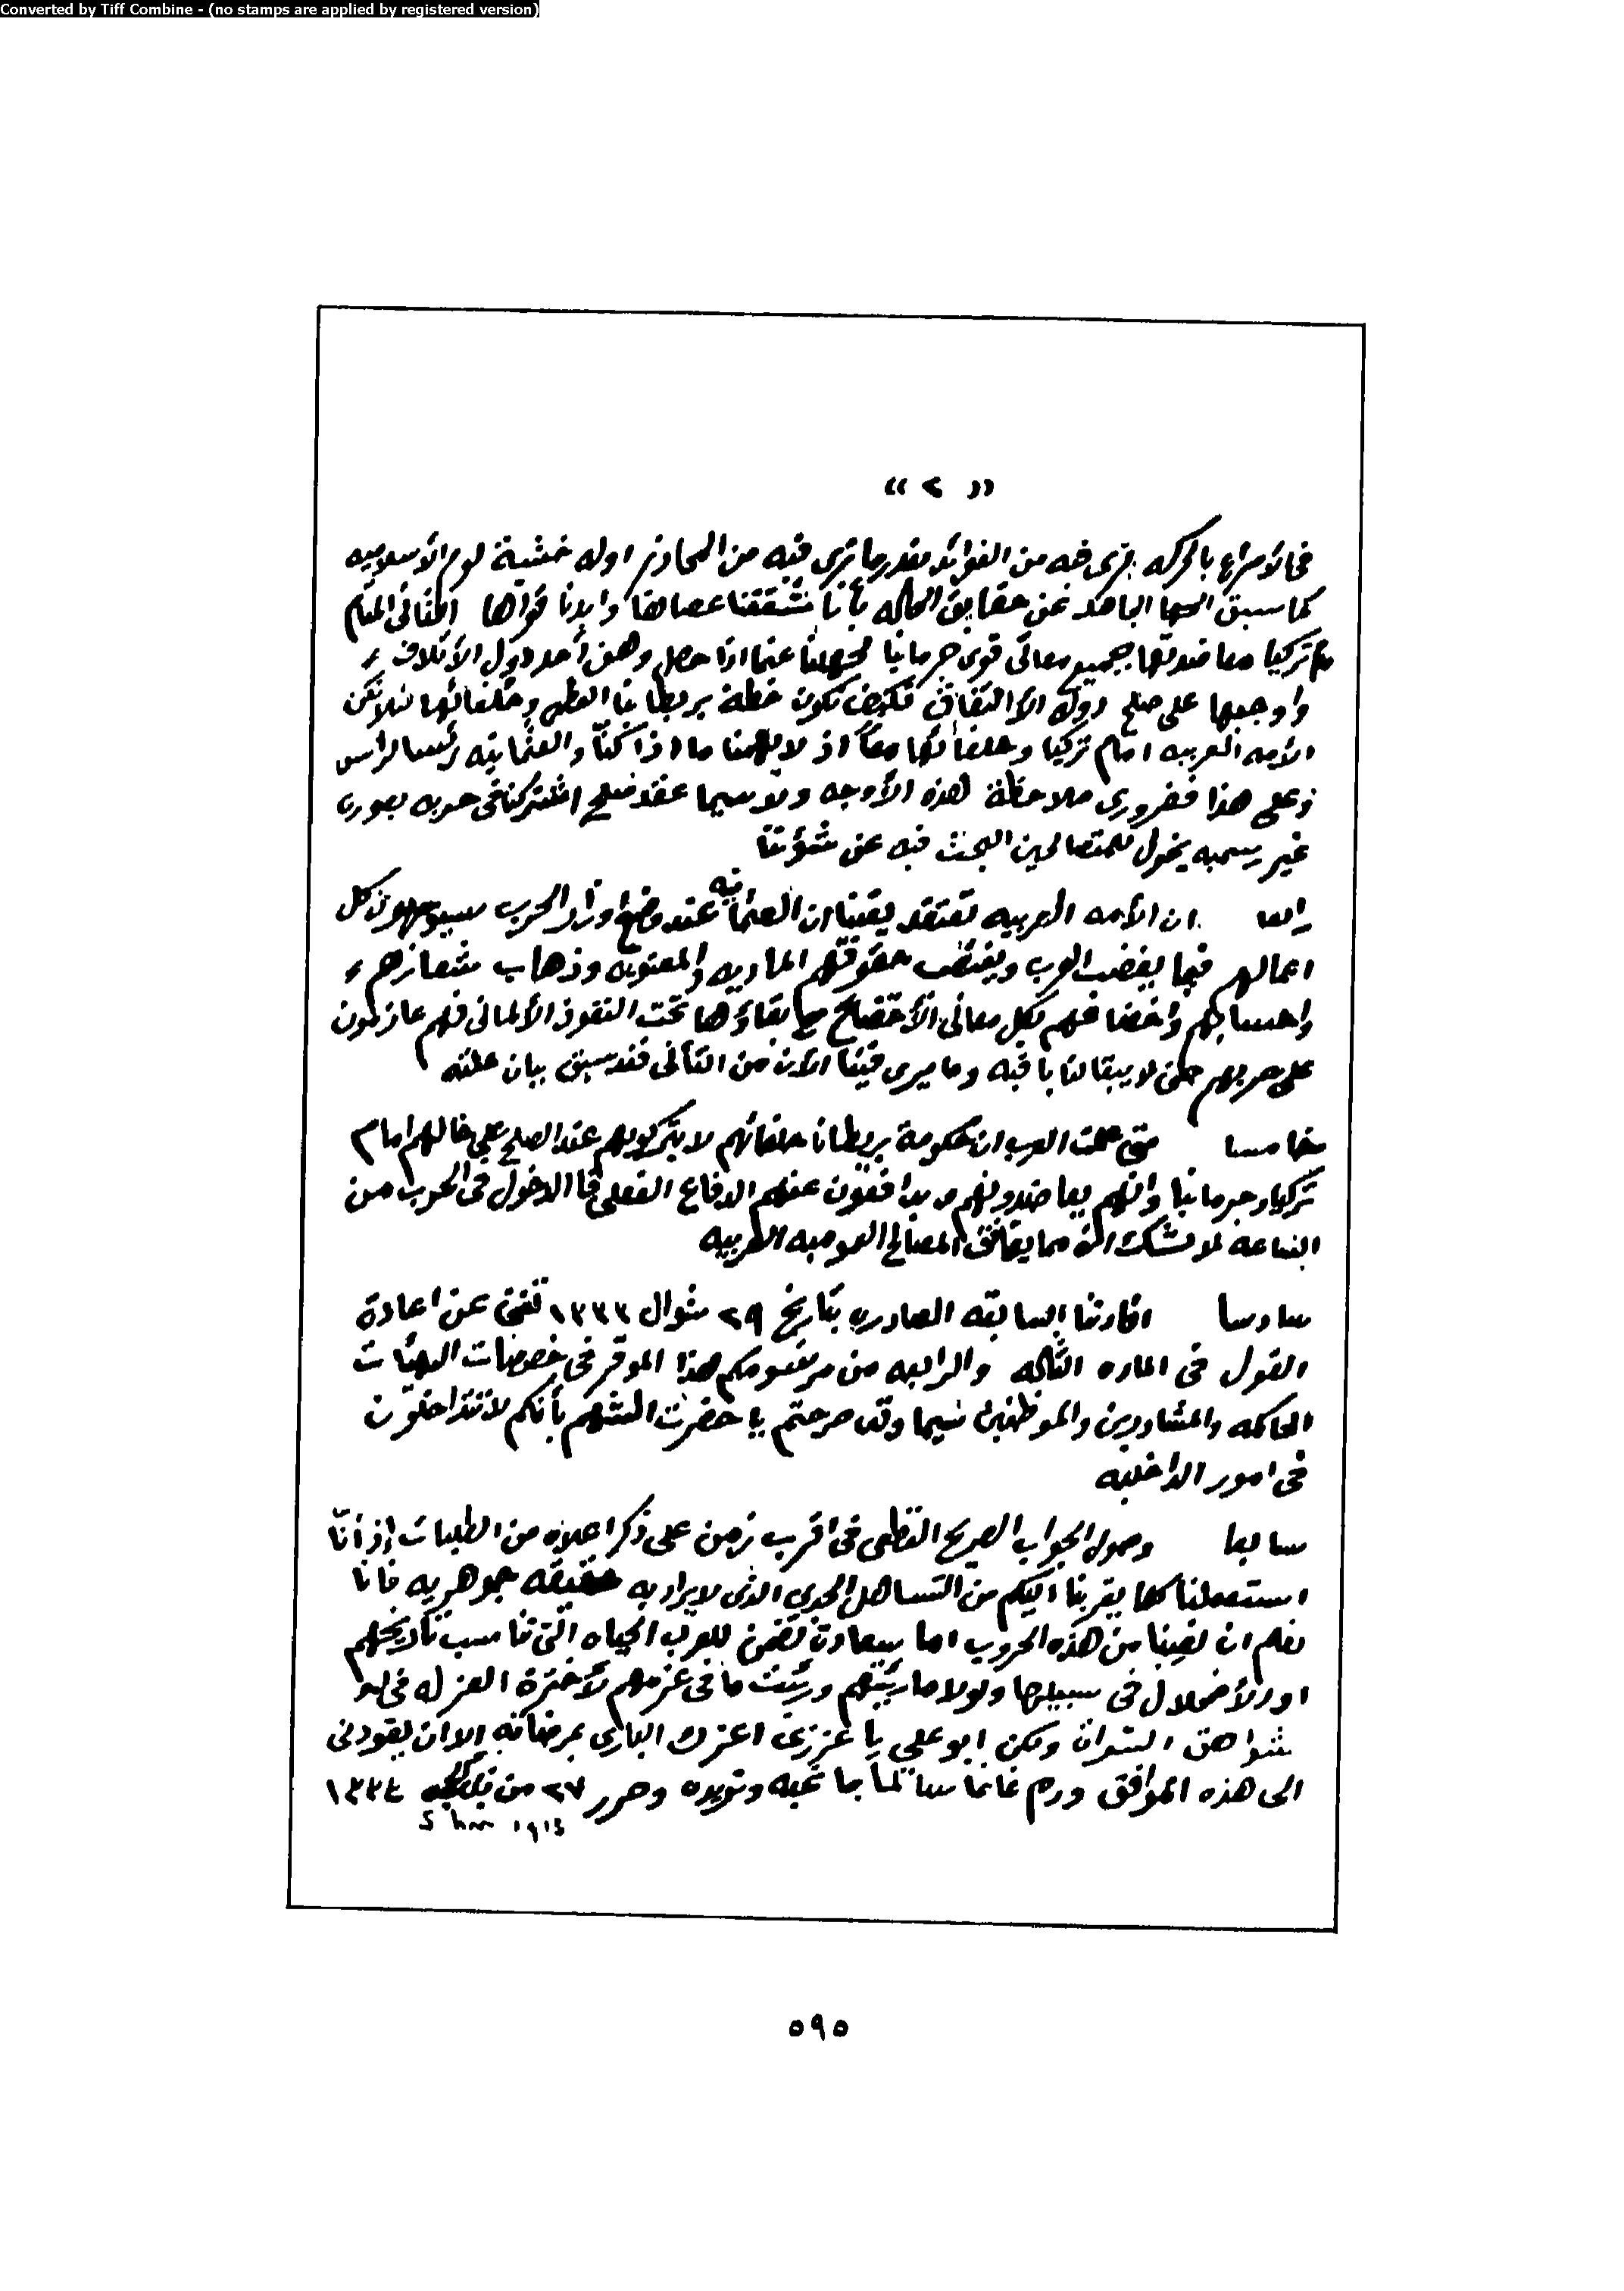 Converted by Tiff Combine - (no stamps are applied by registered version)
« ٢ »
فالاسراع بالحركه نرى فيه من الفوائد بقدر ما نرى فيه من المحاذر اوله خشية لوم الاسلاميه
كما سبق الجاهد عن حقايق الحاله بأنا شققنا عصاها وابدنا قواها الثاني المقام
مع تركيا معاضدتها بجميع معاني قوى جرمانيا لجهلنا عما اذا حصل وهن أحد دول الأئتلاف
واوجبها على صلح دول الاتفاق فكيف تكون خطة بريطانيا العظمى وحلفائها لئلا تكن
الأمه العربيه امام تركيا وحلفائها معاً اذ لا يهمنا ما اذا كنّا والعثمانيه رئيسا لراس
وعلى هذا فضروري ملاحظة لهذه الأوجه ولاسيما عقد صلح اشتركنا في حربه بصوره
غير رسميه يخول للمتصالحين البحث فيه عن شؤننا
رابعا ان الأمه العربيه تعتقد يقينا ان العثمانيه عند وضع اوزار الحرب سيوجهون كل
اعمالهم فيما يغضب العرب ويغتصب حقوقهم الماديه والمعنويه وذهاب شعائرهم
واحسابهم واخضاعهم بكل معاني مع بقاؤها تحت النفوذ الألماني فهم عازمون
على حربهم حتى لا يبقا لنا باقيه وما يرى فينا الآن من التأني فقد سبق بيان علته
خامسا متى علمت العرب ان حكومة بريطانيا حلفائهم لا يتركوهم عند الصلح على حالهم امام
تركيا وجرمانيا وانهم يعاضدونهم ويدافعون عنهم الدفاع الفعلي فالدخول في الحرب من
الساعه لا شك انه مما يوافق المصالح العموميه العربيه
سادسا افادتنا السابقه الصادره بتاريخ ٢٩ شوال ١٣٣٣ تغني عن اعادة
القول في الماده الثالثه والرابعه من مرسومكم هذا الموقر في خصوصات الهيئات
الحاكمه والمشاورين والموظفين سيما وقد صرحتم يا حضرت الشهم بأنكم لا تتداخلون
في امور الداخليه
سابعا وصول الجواب الصريح القطعي في اقرب زمن على ذكر اعلاه من الطلبات إذ أنّا
استعملنا كلما يقربنا اليكم من التساهل الجدي الذي لا يراد به حقيقه جوهريه فانا
نعلم ان نصيبنا من هذه الحروب اما سعادة تضمن للعرب الحياه التي تناسب تاريخهم
او الأضمحلال في سبيلها ولولا ما رئيتهم ورئيت ما في عزمهم لأخترة العزله في
شواهق السراة ولكن ابو علي يا عزيزي اعزك الباري بمرضاته الا ان يقودني
الى هذه المواقف ودم غانما سالماً بما تحبه وتوده وحرر ٢٧ من ١٣٣٤
٥٩٥